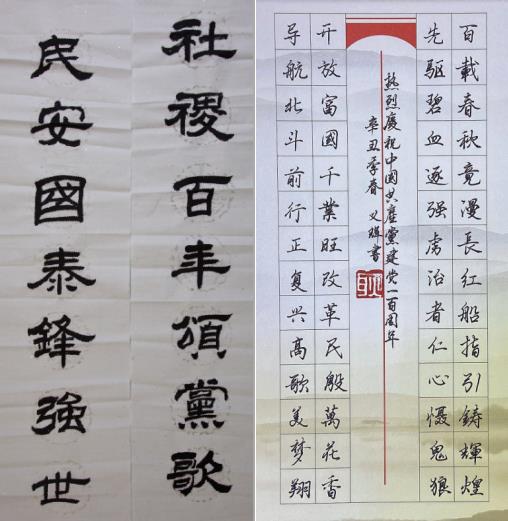 社稷百年頌黨歌
民安國泰鋒強世
百載春秋竟漫長红船指引鑄輝煌
先驱碧血逐强虏治者仁心慑鬼狼
热烈慶祝中國共產黨建党一百周年
辛丑季春 書
开放富國千業旺改革民殷萬花香
导航北斗前行正复兴高歌美梦翔